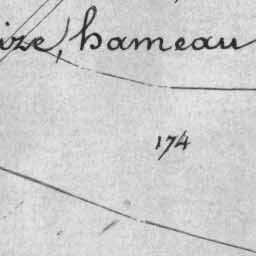 ize, hameau
174